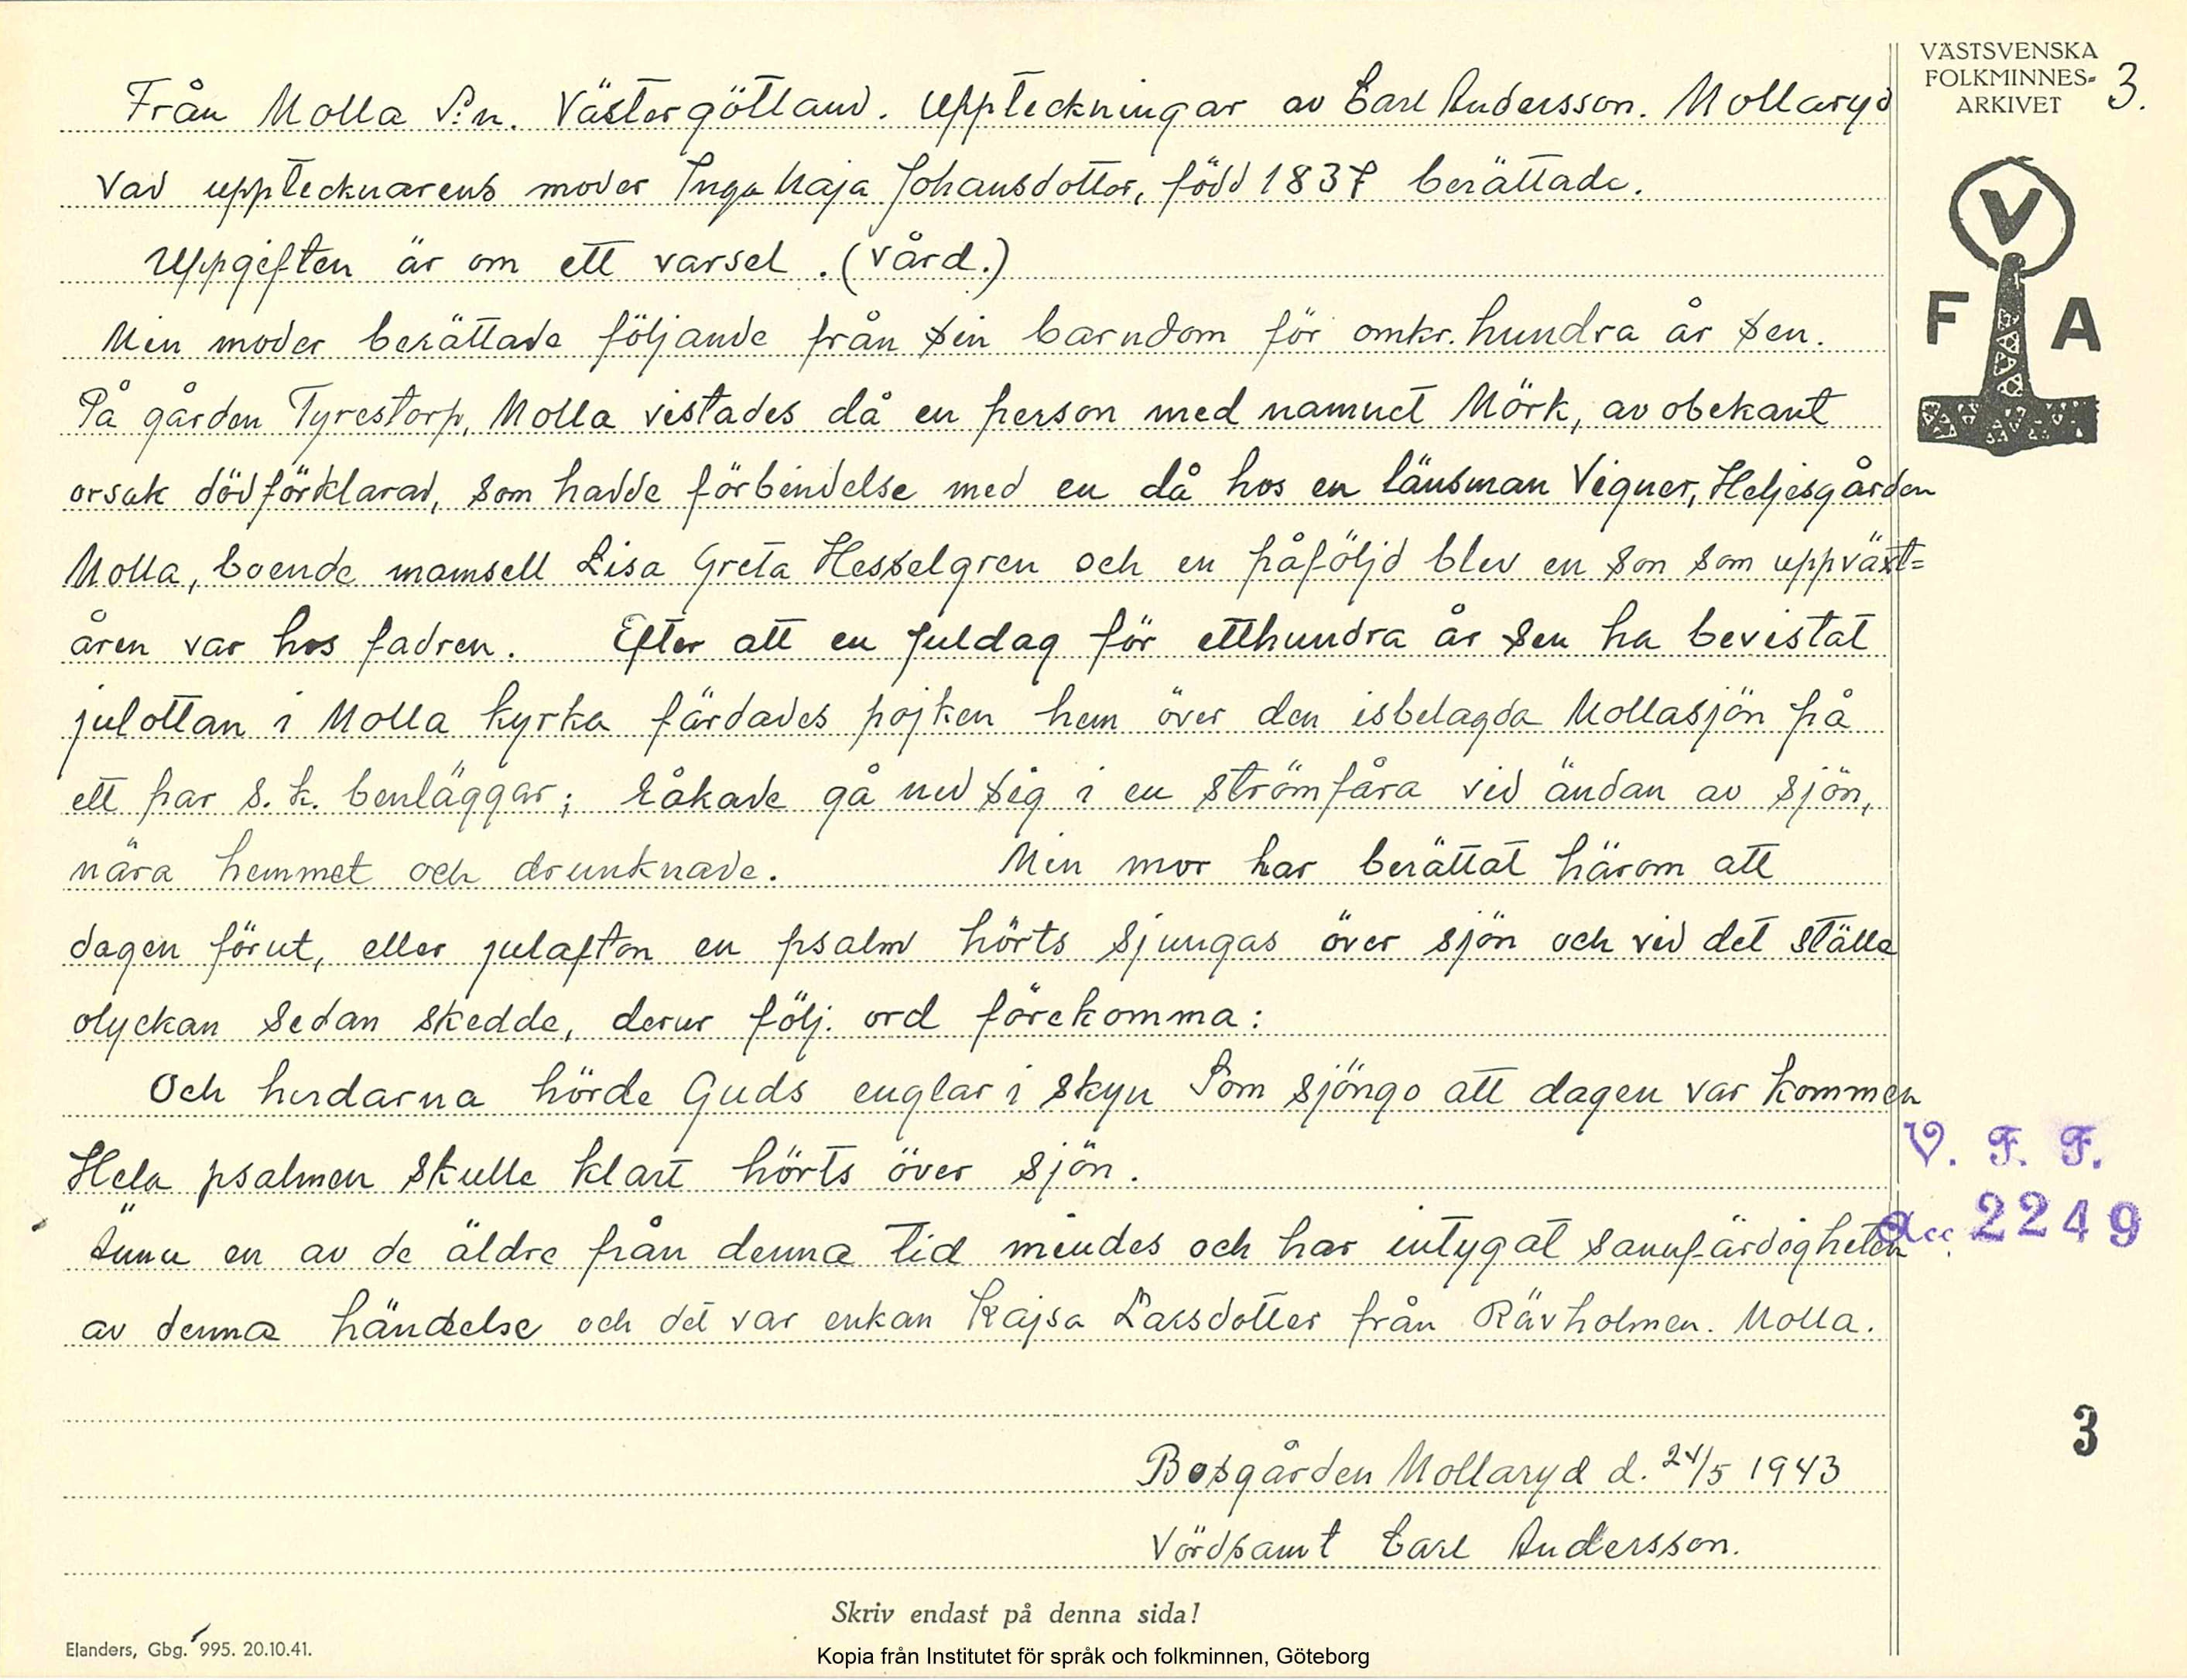 VÄSTSVENSKA
FOLKMINNES=
ARKIVET
3.
V
F A
Från Molla S:n. Västergötland. Uppteckningar av Carl Andersson. Mollaryd
Vad upptecknarens moder Inga Maja Johansdotter, född 1837 berättade.
Uppgiften är om ett varsel. (Vård.)
Min moder berättade följande från sin barndom för omkr. hundra år sen.
På gården Tyrestorp, Molla vistades då en person med namnet Mörk, av obekant
orsak dödförklarad, som hadde förbindelse med en då hos en länsman Vigner, Heljesgården
Molla, boende mamsell Lisa Greta Hesselgren och en påföljd blev en son som uppväxt=
åren var hos fadren. Efter att en juldag för etthundra år sen ha bevistat
julottan i Molla kyrka färdades pojken hem över den isbelagda Mollasjön på
ett par s.k. benläggar; råkade gå ned sig i en strömfåra vid ändan av sjön,
nära hemmet och drunknade. Min mor har berättat härom att
dagen förut, eller julafton en psalm hörts sjungas över sjön och vid det ställe
olyckan sedan skedde, derur följ. ord förekomma:
Och herdarna hörde Guds englar i skyn Som sjöngo att dagen var kommen
Hela psalmen skulle klart hörts över sjön.
Ännu en av de äldre från denna tid mindes och har intygat sannfärdigheten
av denna händelse och det var enkan Kajsa Larsdotter från Rävholmen. Molla.
V. F. F.
Acc. 2249
3
Bosgården Mollaryd d. 24/5 1943
Vördsamt Carl Andersson.
Skriv endast på denna sida!
Elanders, Gbg. 995. 20.10.41.
Kopia från Institutet för språk och folkminnen, Göteborg